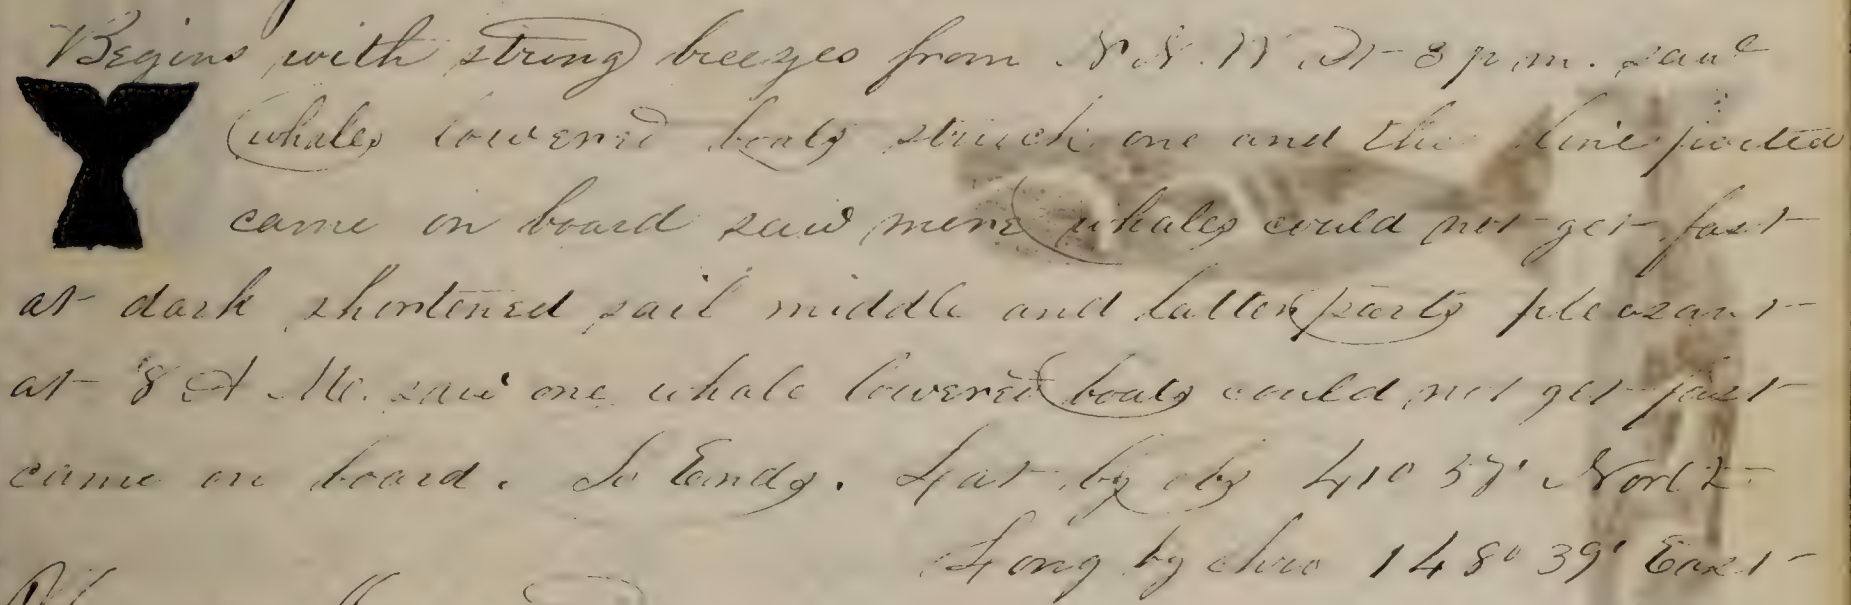 Begins with strong breezes from N.N.W. At 3 p.m. saw
whales lowered boats struck one and the line parted
came on board saw more whales could not get fast
at dark shortened sail middle and latter parts pleasant
at 8 A M. saw one whale lowered boats could not get fast
came on board. So Ends. Lat by obs 41° 57' North
Long by chro 148° 39' East